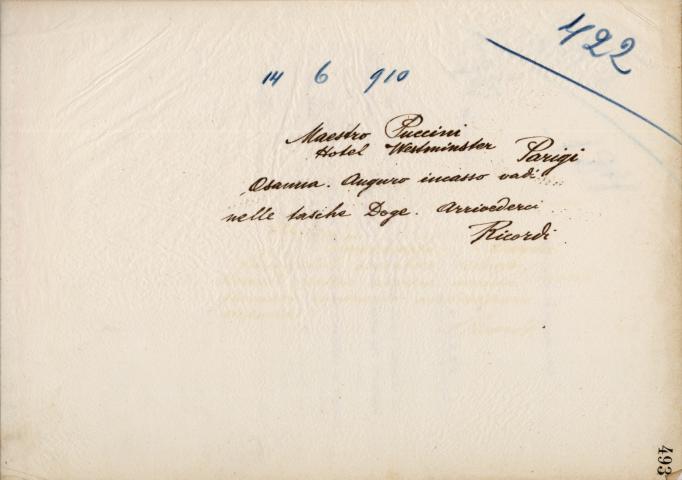 422
14 6 910
Maestro Puccini
Hotel Westminster Parigi
Osanna. Auguro incasso vadi
nelle tasche Doge. Arrivederci
Ricordi
493